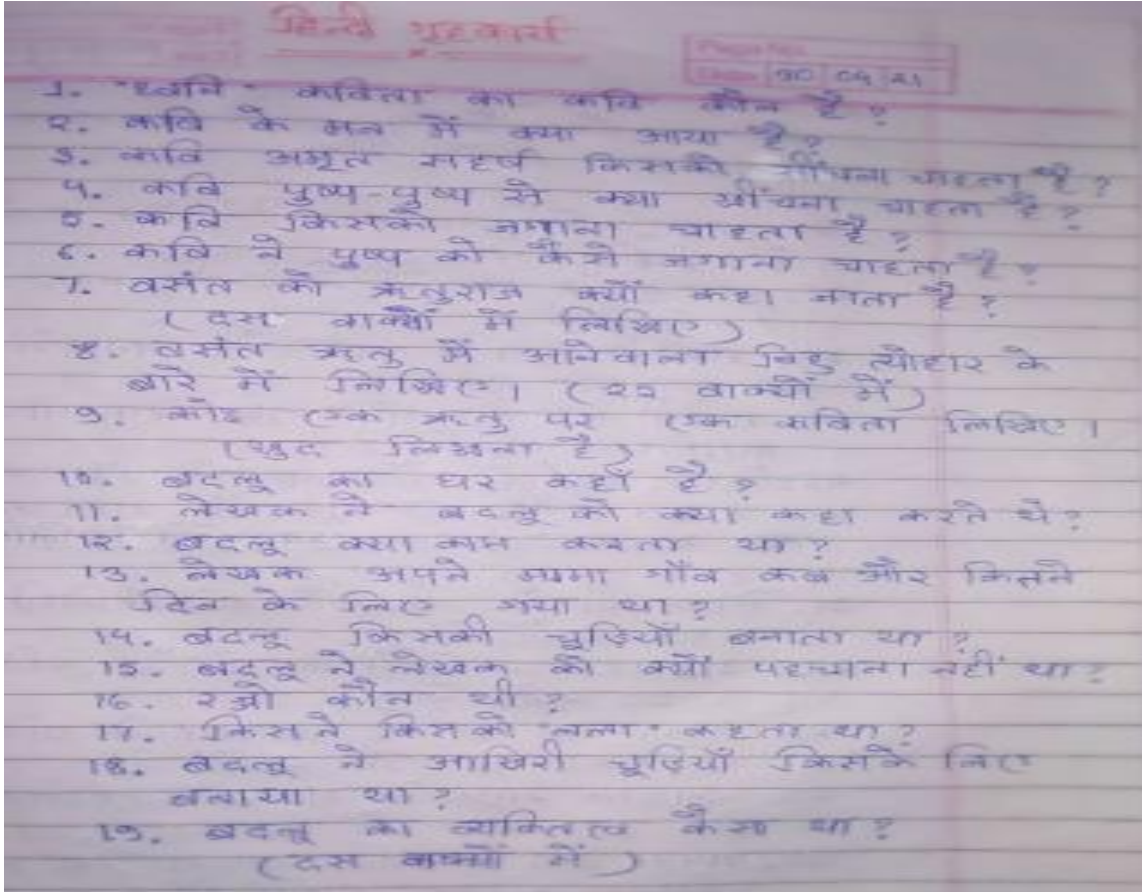 हिन्दी गृहकार्य
Page No.
Date 30 04 21
1. "ध्वनि" कविता का कवि कौन है ?
२. कवि के मन में क्या आया है ?
३. कवि अमृत सहर्ष किसको सींचना चाहता है ?
4. कवि पुष्प-पुष्प से क्या खींचना चाहता है ?
5. कवि किसको जगाना चाहता है ?
6. कवि ने पुष्प को कैसे जगाना चाहता है ?
7. वसंत को ऋतुराज क्यों कहा जाता है ?
(दस वाक्यों में लिखिए)
8. वसंत ऋतु में आनेवाला बिहु त्योहार के
बारे में लिखिए। ( वाक्यों में)
9. कोइ एक ऋतु पर एक कविता लिखिए।
(खुद लिखना है)
10. बदलू का घर कहाँ है ?
11. लेखक ने बदलू को क्या कहा करते थे ?
12. बदलू क्या काम करता था ?
13. लेखक अपने मामा गाँव कब और कितने
दिन के लिए गया था ?
14. बदलू किसकी चूड़ियाँ बनाता था ?
15. बदलू ने लेखक को क्यों पहचाना नहीं था ?
16. रज्जो कौन थी ?
17. किसने किसको "लला" कहता था ?
18. बदलू ने आखिरी चूड़ियाँ किसके लिए
बनाया था ?
19. बदलू का व्यक्तित्व कैसा था ?
(दस वाक्यों में)